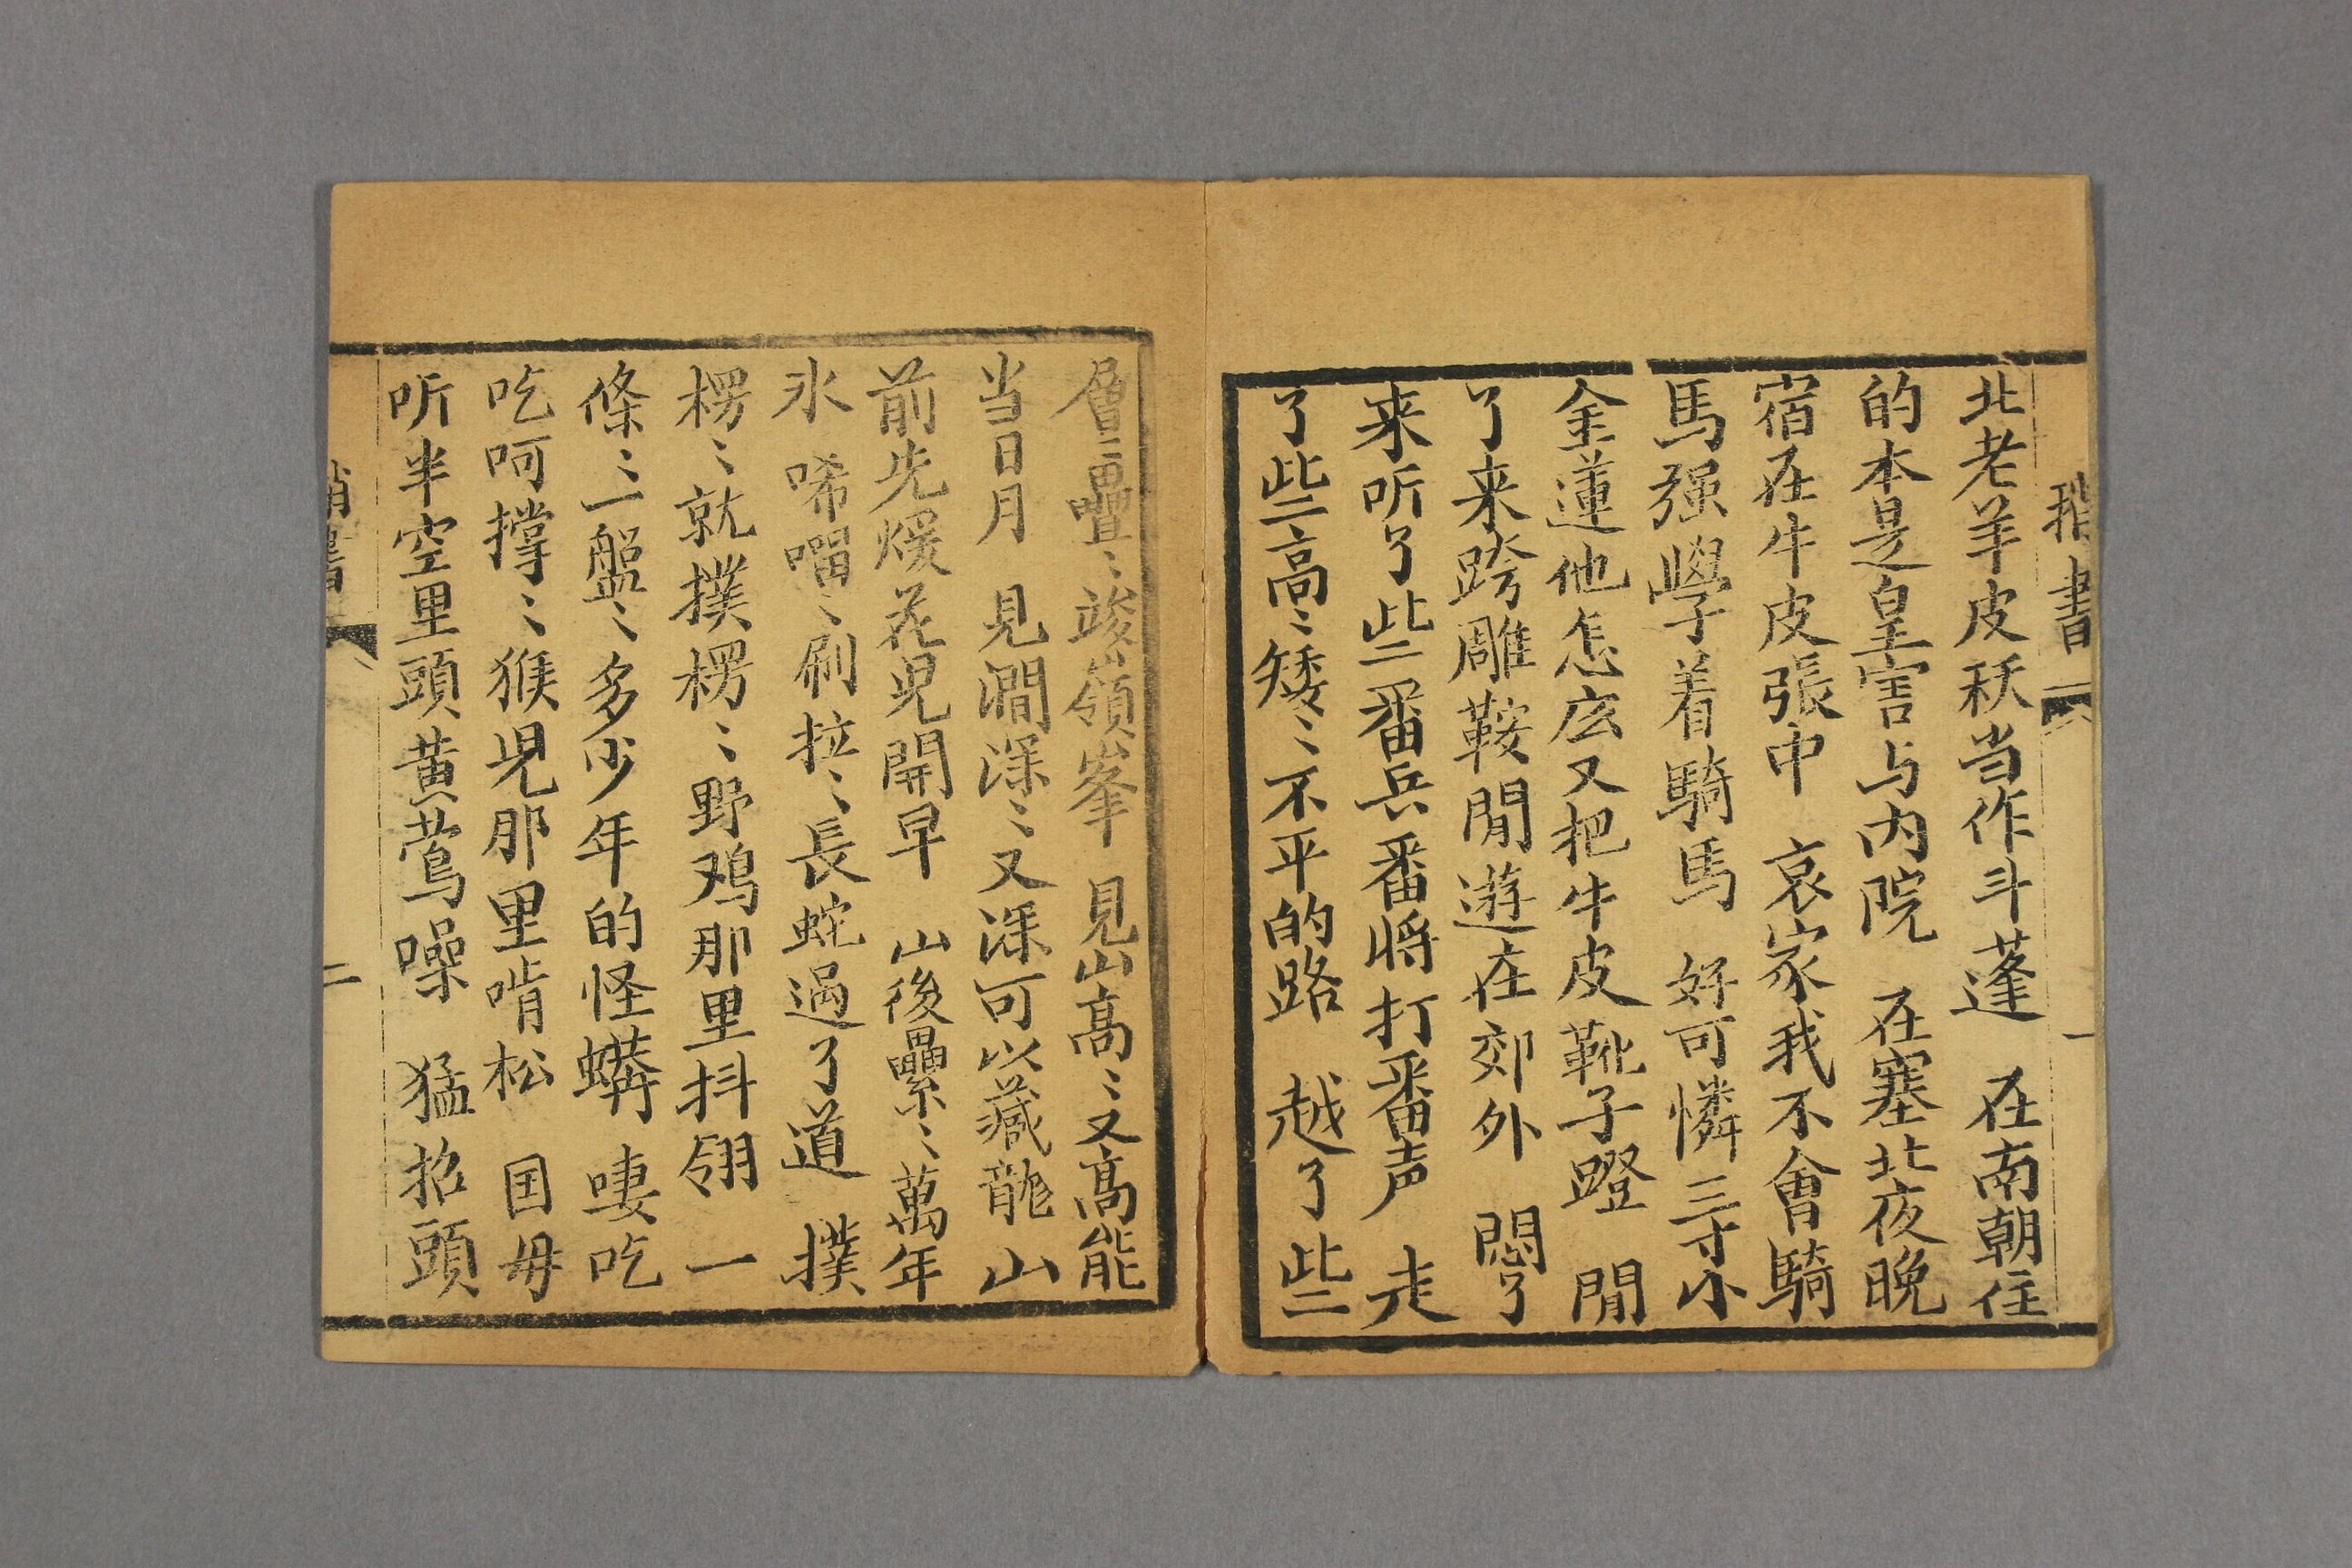 書
一
北老羊皮秗当作斗蓬　在南朝住
的本是皇害与内院　在塞北夜晚
宿在牛皮張中　哀家我不會騎
馬强學着騎馬　好可憐三寸小
金蓮他怎庅又把牛皮靴子蹬　閒
了来跨雕鞍閒遊在郊外　悶了
来听了些番兵番将打番声　走
了些高〻矮〻不平的路　越了些
層〻疊〻竣嶺峯　見山高〻又高能
当日月　見澗深〻又深可以藏龍　山
前先煖花児開早　山後纍〻萬年
氷　唏㗰〻刷拉〻長蛇過了道　撲
楞〻就撲楞〻野鸡那里抖翎　一
條〻一盤〻多少年的怪蟒　唛吃
吃呵撑〻猴児那里啃松　国母
听半空里頭黄鶯噪　猛招頭
二